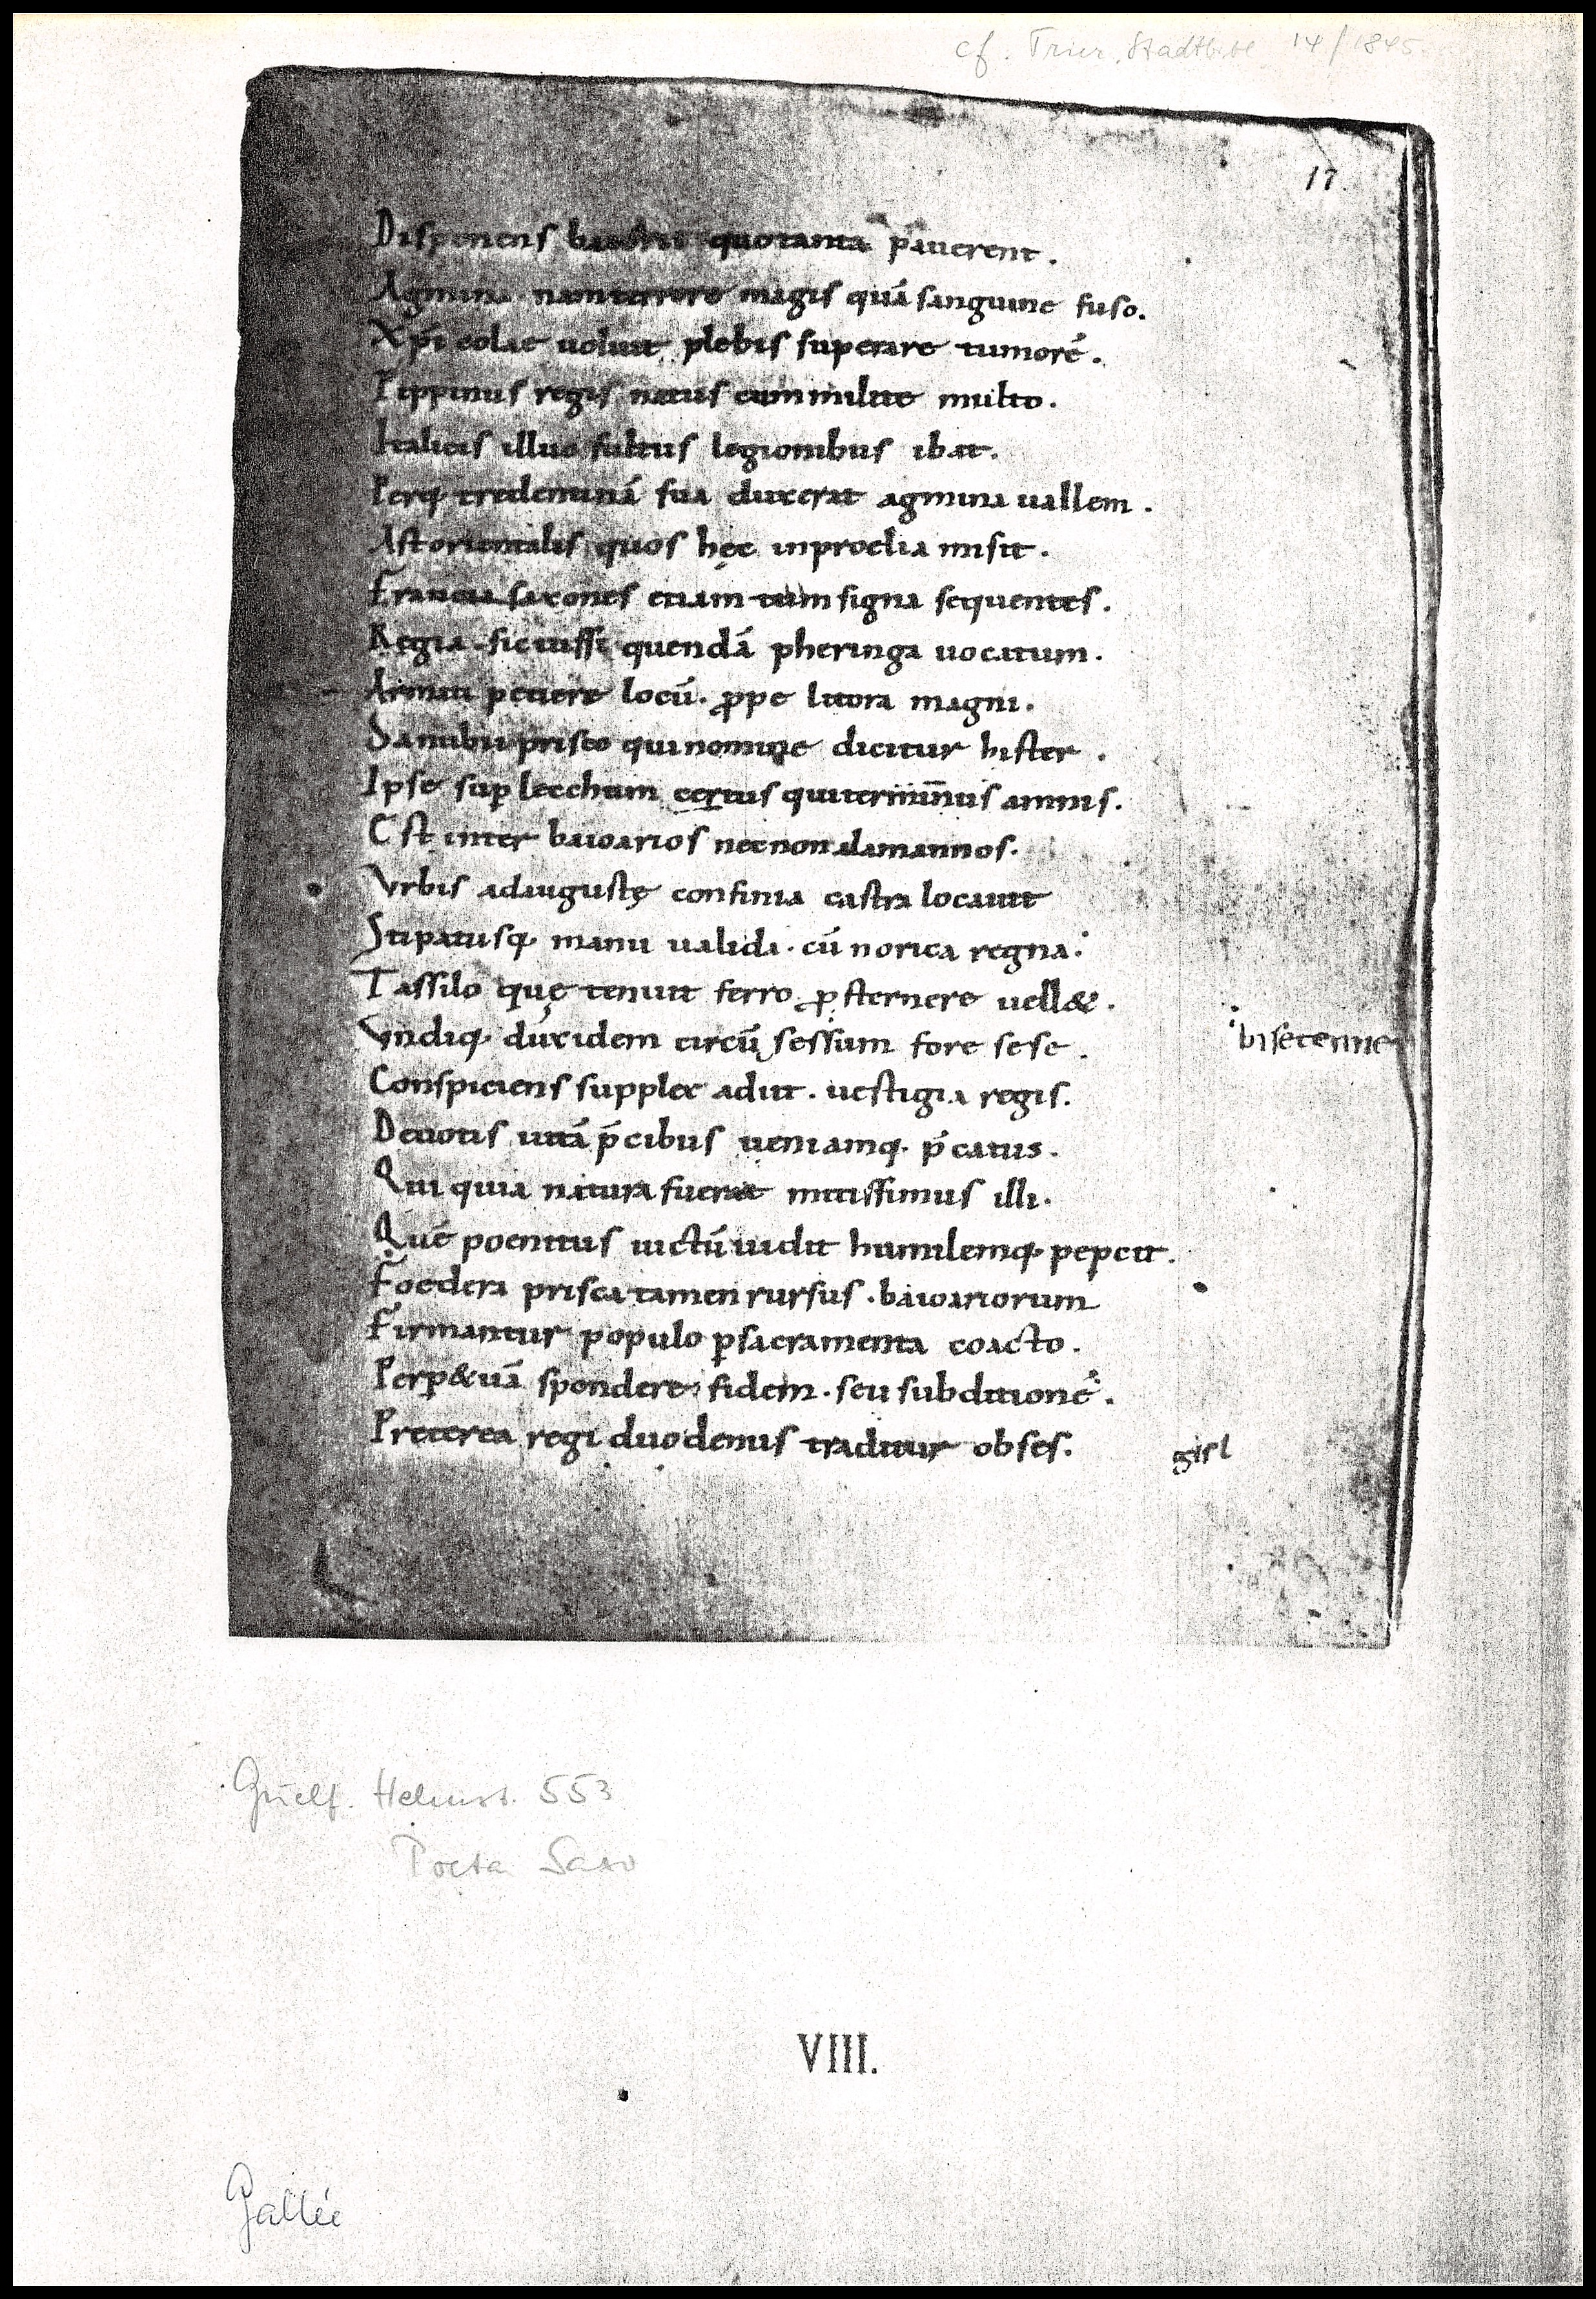 cf. Trier, Stadtbibl 14/1845
17.
Disponens baioarii quo tanta p̄auerent.
Agmina nam terrore magis quā sanguine fuso.
Xp̄i colae uoluit plebis superare tumorē.
Pippinus regis natus cum milite multo.
Italicis illuc fultus legionibus ibat.
Perq; tredentinā sua duxerat agmina uallem.
Ast orientalis quos hęc in proelia misit.
Francia saxones etiam tum signa sequentes.
Regia sic iussi quendā pheringa uocatum.
Armati petiere locū. ꝓpe litora magni.
Danubii prisco qui nomine dicitur hister.
Ipse suꝑ lecchum certus qui terminus amnis.
Est inter baioarios nec non alamannos.
Vrbis ad augustę confinia castra locauit
Stipatusq; manu ualida. cū norica regna:
Tassilo quę tenuit ferro ꝓsternere uell&.
Vndiq; dux idem circū sessum fore sese. bisetenne
Conspiciens supplex adiit. uestigia regis.
Deuotis uitā p̄cibus ueniamq; p̄catus.
Qui quia natura fuerat mitissimus illi.
Quē poenitus uictū uidit humilemq; pepcit.
Foedera prisca tamen rursus. baioariorum
Firmantur populo ꝑ sacramenta coacto.
Perp&uā spondere fidem. seu subditionē.
Preterea regi duodenus traditur obses. gisl
Guelf. Helmst. 553
Poeta Saxo
VIII.
Gallée